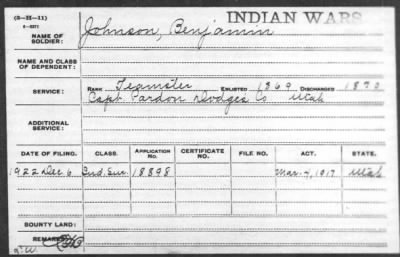 (3-H-11)
6-3271
INDIAN WARS
NAME OF SOLDIER: Johnson, Benjamin
NAME AND CLASS OF DEPENDENT:
SERVICE: RANK Teamster ENLISTED 1869 DISCHARGED 1870
Capt Pardon Dodges Co Utah
ADDITIONAL SERVICE:
DATE OF FILING. CLASS. APPLICATION No. CERTIFICATE No. FILE NO. ACT. STATE.
1922 Dec 6 Ind. Sur. 18898 Mar. 4, 1917 Utah
BOUNTY LAND:
REMARKS: